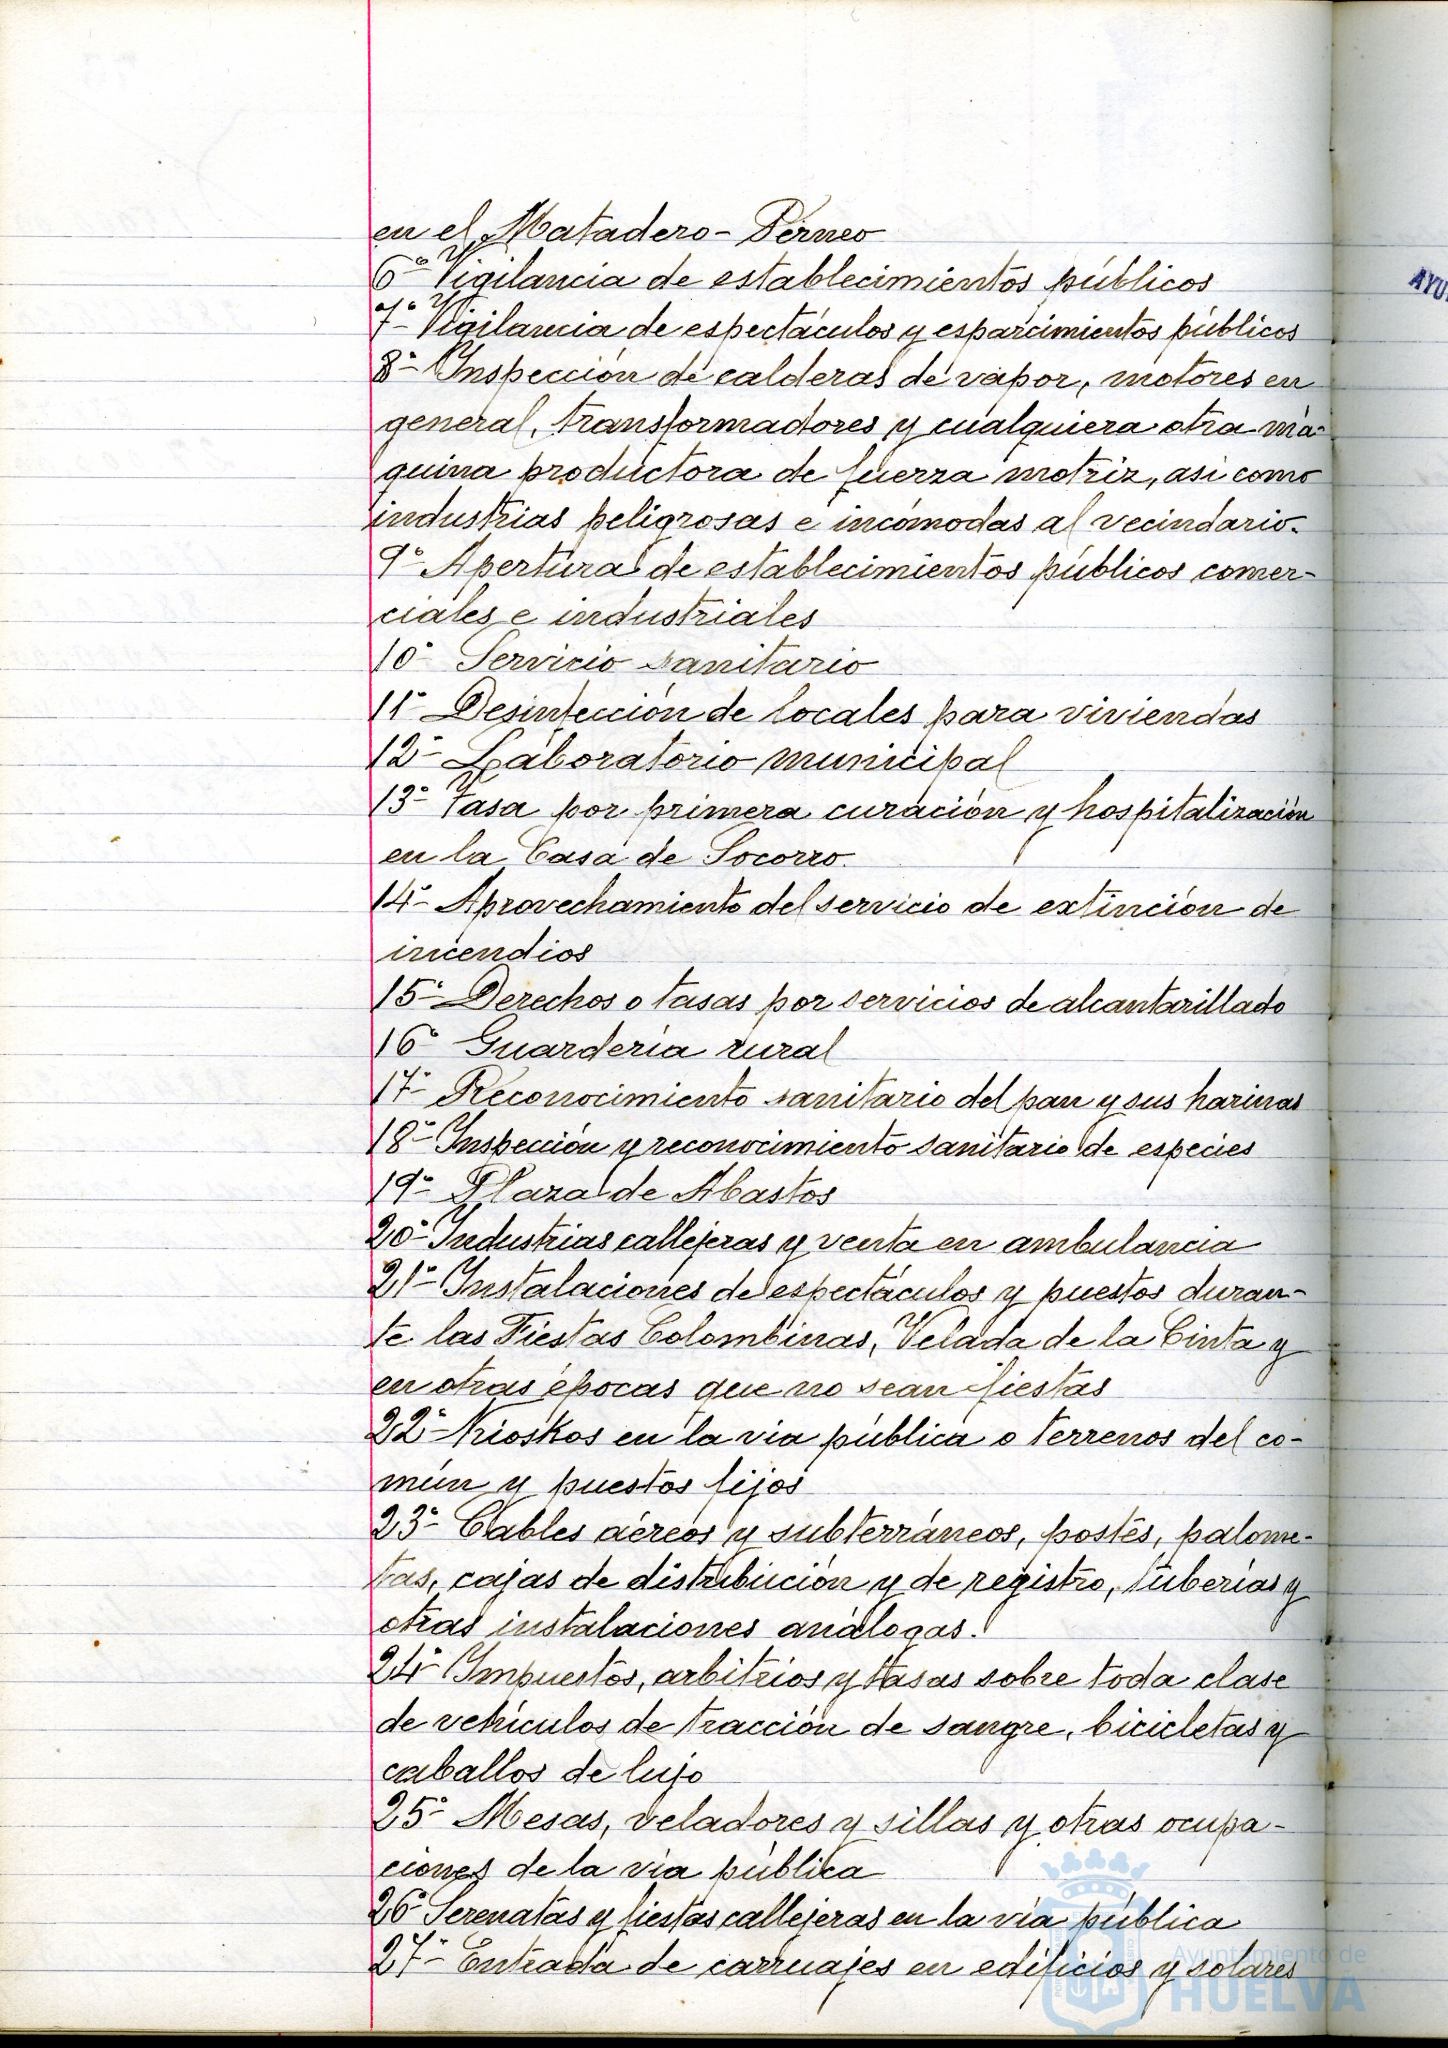 en el Matadero - Perneo
6º- Vigilancia de establecimientos públicos
7º- Vigilancia de espectáculos y esparcimientos públicos
8º- Inspección de calderas de vapor, motores en
general, transformadores y cualquiera otra má-
quina productora de fuerza motriz, asi como
industrias peligrosas e incómodas al vecindario.
9º- Apertura de establecimientos públicos comer-
ciales e industriales
10º- Servicio sanitario
11º- Desinfección de locales para viviendas
12º- Laboratorio municipal
13º- Tasa por primera curación y hospitalización
en la Casa de Socorro.
14º- Aprovechamiento del servicio de extinción de
incendios
15º- Derechos o tasas por servicios de alcantarillado
16º- Guardería rural
17º- Reconocimiento sanitario del pan y sus harinas
18º- Inspección y reconocimiento sanitario de especies
19º- Plaza de Abastos
20º- Industrias callejeras y venta en ambulancia
21º- Instalaciones de espectáculos y puestos duran-
te las Fiestas Colombinas, Velada de la Cinta y
en otras épocas que no sean fiestas
22º- Kioskos en la via pública o terrenos del co-
mún y puestos fijos
23º- Cables aéreos y subterráneos, postes, palome-
tas, cajas de distribución y de registro, tuberías y
otras instalaciones análogas.
24º- Impuestos, arbitrios y tasas sobre toda clase
de vehículos de tracción de sangre, bicicletas y
caballos de lujo
25º- Mesas, veladores y sillas y otras ocupa-
ciones de la vía pública
26º- Serenatas y fiestas callejeras en la vía pública
27º- Entrada de carruajes en edificios y solares
AYU
Ayuntamiento de
HUELVA